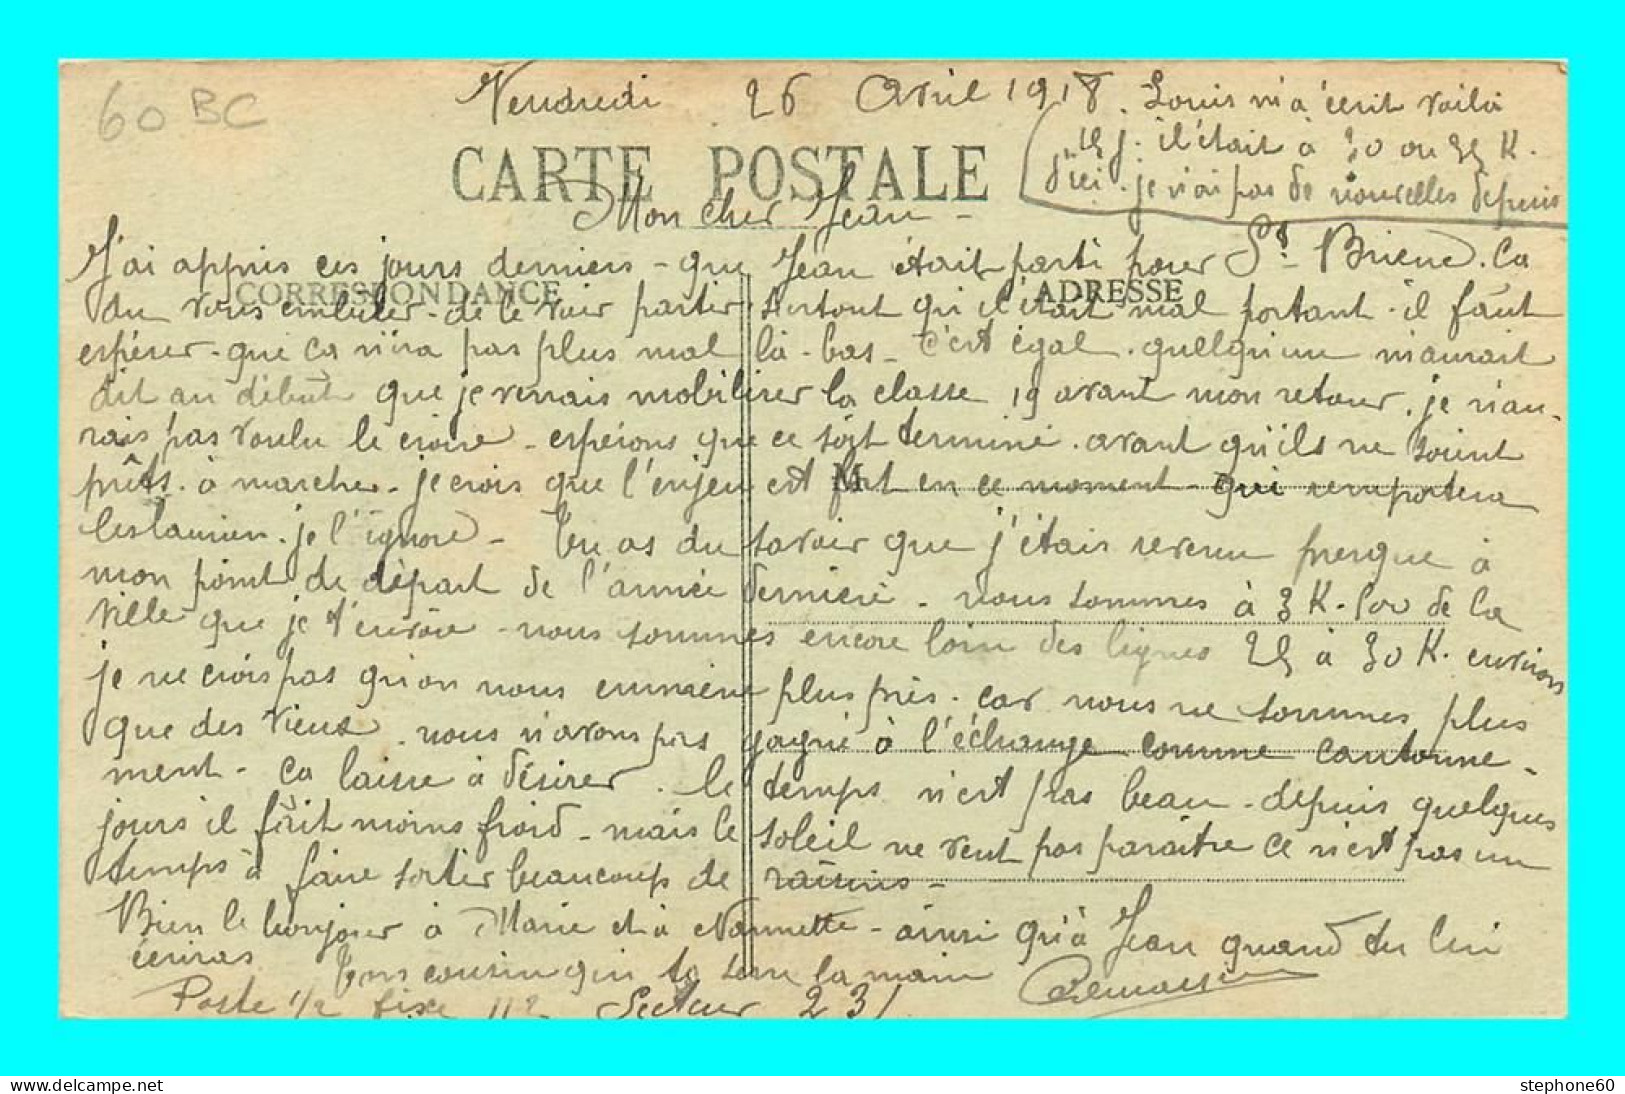 60 BC
Vendredi 26 Avril 1918. Louis m'a écrit voilà
15 j. il était à 30 ou 35 K.
d'ici. je n'ai pas de nouvelles depuis
CARTE POSTALE
Mon cher Jean -
J'ai appris ces jours derniers - que Jean était parti pour St Brieuc. Ca
CORRESPONDANCE ADRESSE
du vous embêter - de le voir partir surtout qu'il était mal portant. il faut
espérer - que ca n'ira pas plus mal là-bas - C'est égal. quelqu'un m'aurait
dit au début que je verrais mobiliser la classe 19 avant mon retour. je n'au-
rais pas voulu le croire - espérons que ce soit terminé. avant qu'ils ne soient
prêts. à marcher - je crois que l'enjeu est fort en ce moment - qui remportera
M
les lauriers. je l'ignore - Tu as du savoir que j'étais revenu presque à
mon point de départ de l'année dernière - nous sommes à 3 K. de la
ville que je t'envoie - nous sommes encore loin des lignes 25 à 30 K. environ
je ne crois pas qu'on nous emmène plus près. car nous ne sommes plus
que des vieux. nous n'avons pas gagné à l'échange comme cantonne-
ment - ca laisse à désirer. le temps n'est pas beau - depuis quelques
jours il fait moins froid - mais le soleil ne veut pas paraître ce n'est pas un
temps à faire sortir beaucoup de raisins -
Bien le bonjour à Marie et à Nannette - ainsi qu'à Jean quand tu lui
écriras Ton cousin qui te serre la main
Poste 1/2 fixe 112 Secteur 231
delcampe.net stephone60